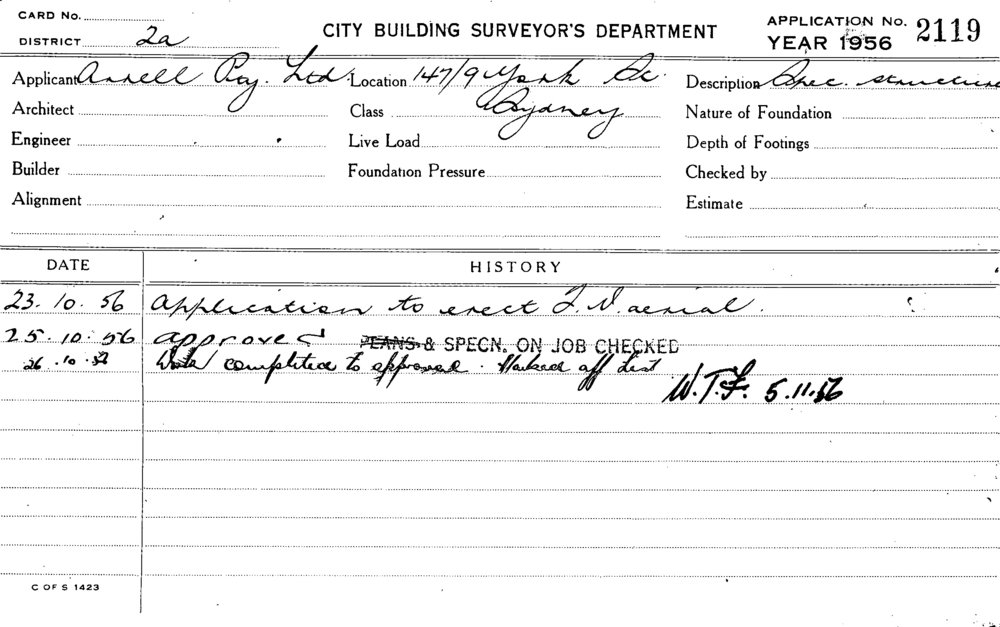 CARD No.
DISTRICT 2a
CITY BUILDING SURVEYOR'S DEPARTMENT
APPLICATION No. 2119
YEAR 1956
Applicant Pty. Ltd. Location 147/9 York St. Description Spec. structure
Architect Class Sydney Nature of Foundation
Engineer Live Load Depth of Footings
Builder Foundation Pressure Checked by
Alignment Estimate
DATE HISTORY
23.10.56 Application to erect T.V. aerial.
25.10.56 approved PLANS & SPECN. ON JOB CHECKED
26.10.56 Work completed to approval. Marked off list
W.T.F. 5.11.56
C OF S 1423